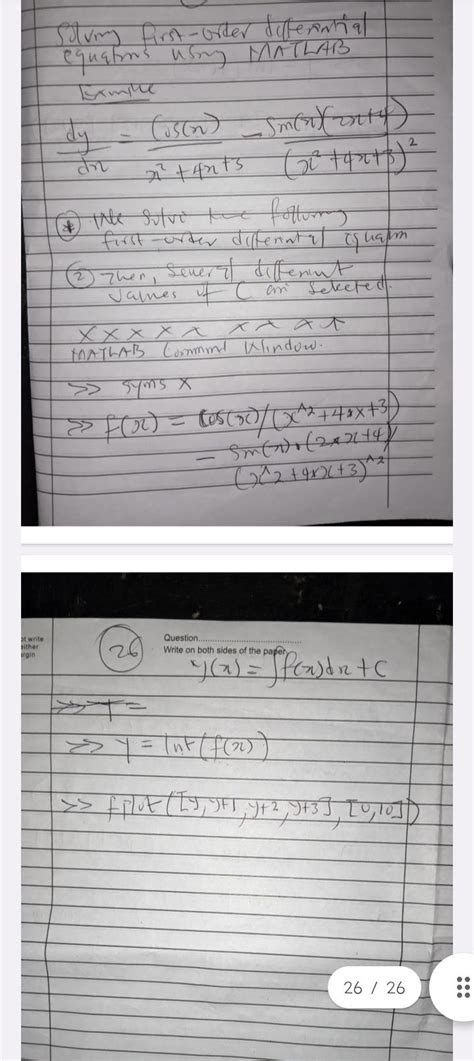 Solving first-order differential
equations using MATLAB
Example
dy/dx = Cos(x)/(x² + 4x + 3) - Sin(x)(2x+4)/(x² + 4x + 3)²
* We solve the following
first-order differential equation
② Then, several different
values of C are selected.
x x x x x x x x x
MATLAB Command Window.
>> syms x
>> f(x) = cos(x)/(x^2+4*x+3)
- Sin(x)*(2*x+4)/
(x^2+4*x+3)^2
ot write
either
argin
26
Question
Write on both sides of the paper
y(x) = ∫f(x)dx + C
>> Y =
>> Y = Int(f(x))
>> fplot([y, y+1, y+2, y+3], [0,10])
26 / 26